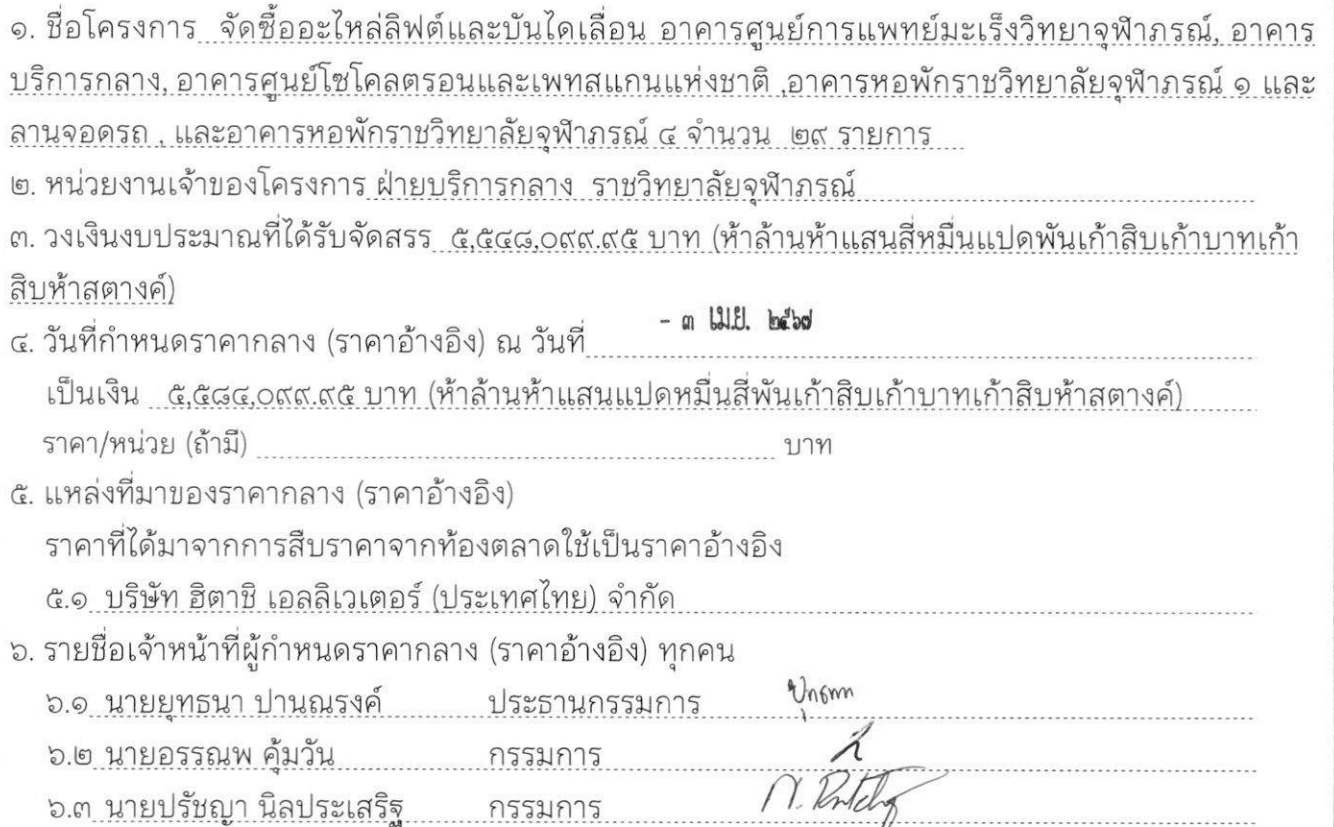 ๑. ชื่อโครงการ จัดซื้ออะไหล่ลิฟต์และบันไดเลื่อน อาคารศูนย์การแพทย์มะเร็งวิทยาจุฬาภรณ์, อาคาร
บริการกลาง, อาคารศูนย์โซโคลตรอนและเพทสแกนแห่งชาติ ,อาคารหอพักราชวิทยาลัยจุฬาภรณ์ ๑ และ
ลานจอดรถ , และอาคารหอพักราชวิทยาลัยจุฬาภรณ์ ๔ จำนวน ๒๙ รายการ
๒. หน่วยงานเจ้าของโครงการ ฝ่ายบริการกลาง ราชวิทยาลัยจุฬาภรณ์
๓. วงเงินงบประมาณที่ได้รับจัดสรร ๕,๕๔๘,๐๙๙.๙๕ บาท (ห้าล้านห้าแสนสี่หมื่นแปดพันเก้าสิบเก้าบาทเก้า
สิบห้าสตางค์)
๔. วันที่กำหนดราคากลาง (ราคาอ้างอิง) ณ วันที่ - ๓ เม.ย. ๒๕๖๗
เป็นเงิน ๕,๕๘๔,๐๙๙.๙๕ บาท (ห้าล้านห้าแสนแปดหมื่นสี่พันเก้าสิบเก้าบาทเก้าสิบห้าสตางค์)
ราคา/หน่วย (ถ้ามี) บาท
๕. แหล่งที่มาของราคากลาง (ราคาอ้างอิง)
ราคาที่ได้มาจากการสืบราคาจากท้องตลาดใช้เป็นราคาอ้างอิง
๕.๑ บริษัท ฮิตาชิ เอลลิเวเตอร์ (ประเทศไทย) จำกัด
๖. รายชื่อเจ้าหน้าที่ผู้กำหนดราคากลาง (ราคาอ้างอิง) ทุกคน
๖.๑ นายยุทธนา ปานณรงค์ ประธานกรรมการ
๖.๒ นายอรรณพ คุ้มวัน กรรมการ
๖.๓ นายปรัชญา นิลประเสริฐ กรรมการ